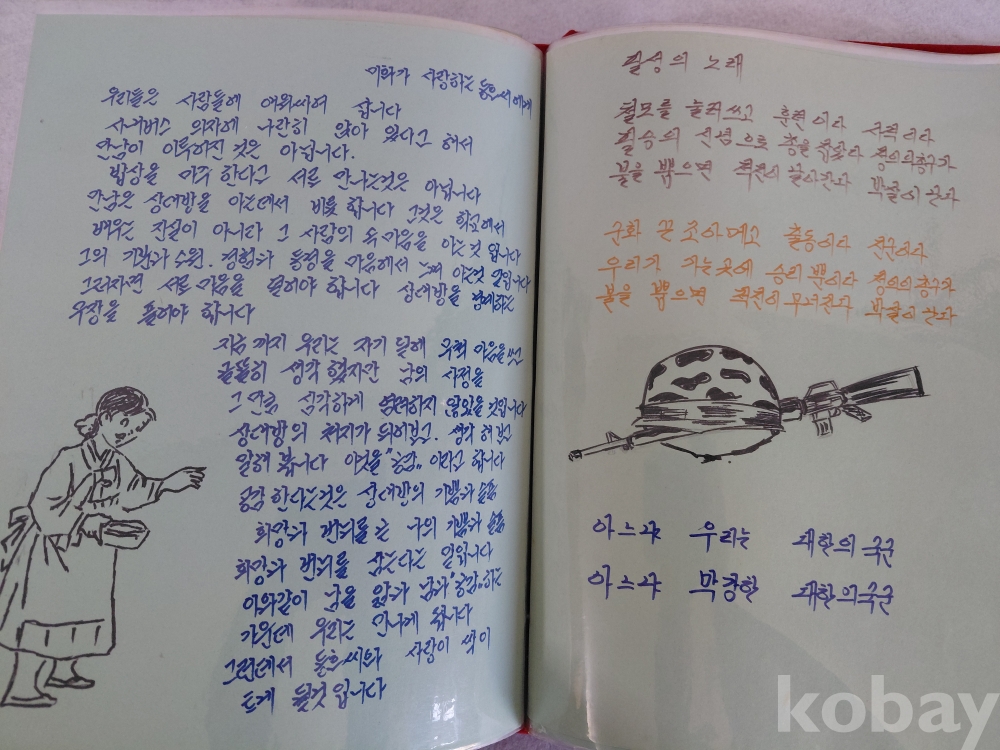 미화가 사랑하는 동효씨에게
우리들은 사람들에 에워싸여 삽니다
시내버스 의자에 나란히 앉아 있다고 해서
만남이 이룩하진 것은 아닙니다.
밥상을 마주 한다고 서로 만나는것은 아닙니다
만남은 상대방을 아는데서 비롯 합니다 그것은 학교에서
배우는 진실이 아니라 그 사람의 속마음을 아는것 입니다
그의 기쁨과 소원. 경험과 동정을 마음에서 느껴 아는것 입니다
그러자면 서로 마음을 열어야 합니다 상대방을 경계하는
무장을 풀어야 합니다
지금 까지 우리는 자기 일에 무척 마음을 쓰고
골똘히 생각 했지만 남의 사정을
그 만큼 심각하게 염려하지 않았을 것입니다
상대방의 처지가 되어보고. 생각 해 보고
말해 봅니다 이것을 "공감" 이라고 합니다
공감 한다는것은 상대방의 기쁨과 슬픔
희망과 번뇌를 는 나의 기쁨과 슬픔
희망과 번뇌를 삼는다는 일입니다
이와같이 남을 알고 남과 "공감"하는
가운데 우리는 만나게 됩니다
그런데서 동효씨와 사랑이 싹이
트게 될것 입니다
필승의 노래
철모를 눌러쓰고 훈련이다 사격이다
필승의 신념으로 총을 잡았다 정의의총구가
불을 뿜으면 적진이 날아간다 박살이 난다
군화 끈 조여메고 출동이다 전군이다
우리가 가는곳에 승리 뿐이다 정의의 총구가
불을 뿜으면 적진이 무너진다 박살이 난다
아느냐 우리는 대한의 국군
아느냐 막강한 대한의국군
kobay